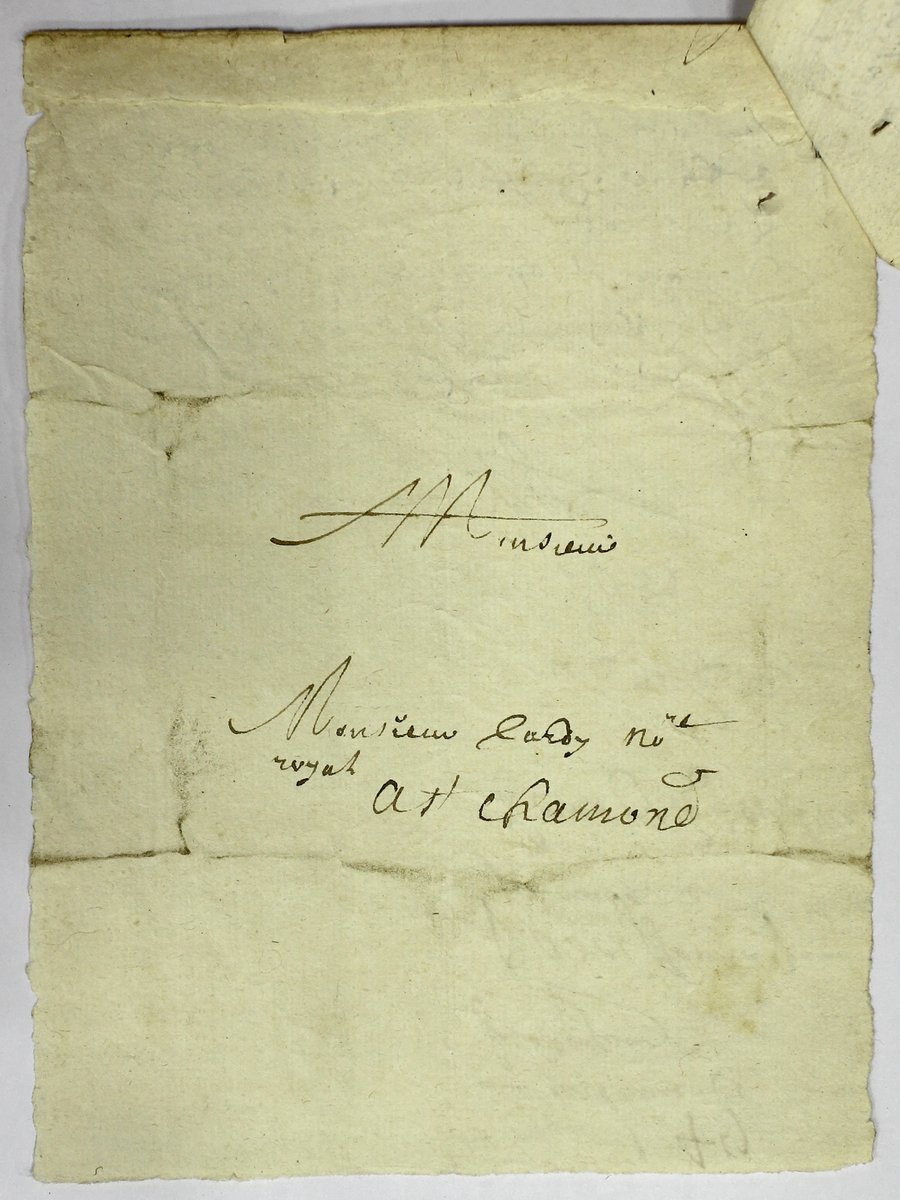 Monsieur
Monsieur Lardy no.re
royal
A st chamond